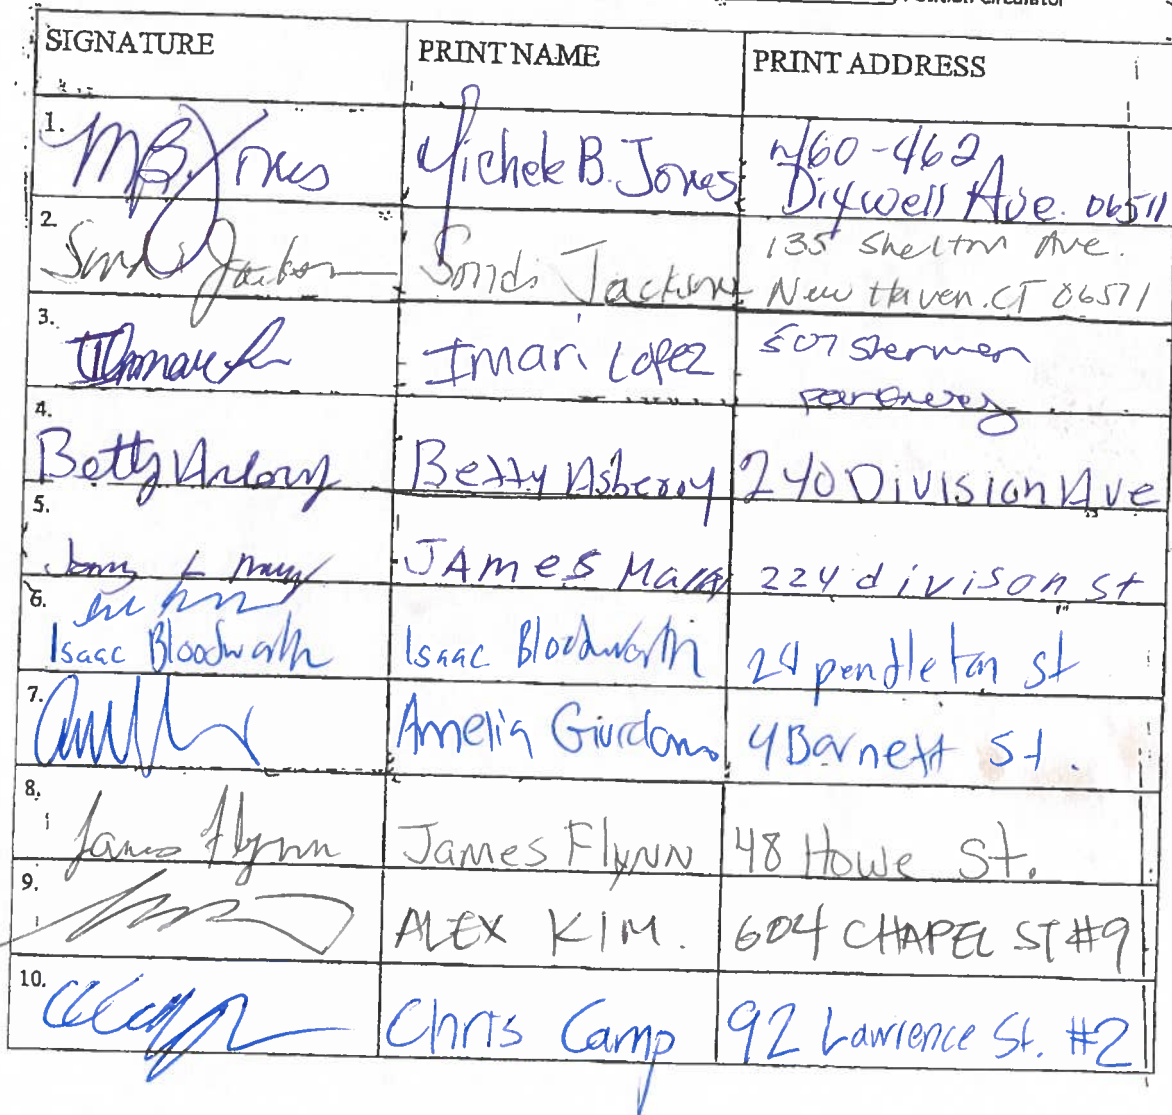 Petition Circulator
SIGNATURE PRINT NAME PRINT ADDRESS
1. M B. Jones Michele B. Jones 460-462
Dixwell Ave. 06511
2. Sondi Jackson Sondi Jackson 135 Shelton Ave.
New Haven. CT 06511
3. Imari Lopez 507 Shermen
parkway
4. Betty Asberry Betty Asberry 240 Division Ave
5. James 224 divison st
6.
Isaac Bloodworth Isaac Bloodworth 24 pendleton st
7. Amelia Giordano 4 Barnett St.
8. James Flynn James Flynn 48 Howe St.
9. ALEX KIM. 604 CHAPEL ST #9
10. Chris Camp 92 Lawrence St. #2